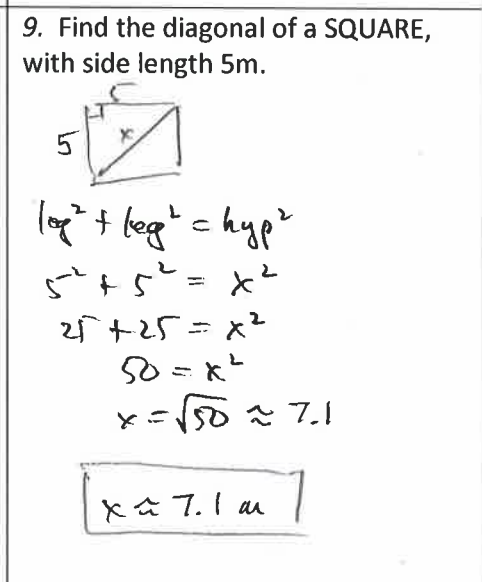 9. Find the diagonal of a SQUARE,
with side length 5m.
5
5 x
leg² + leg² = hyp²
5² + 5² = x²
25 + 25 = x²
50 = x²
x = √50 ≈ 7.1
x ≈ 7.1 m